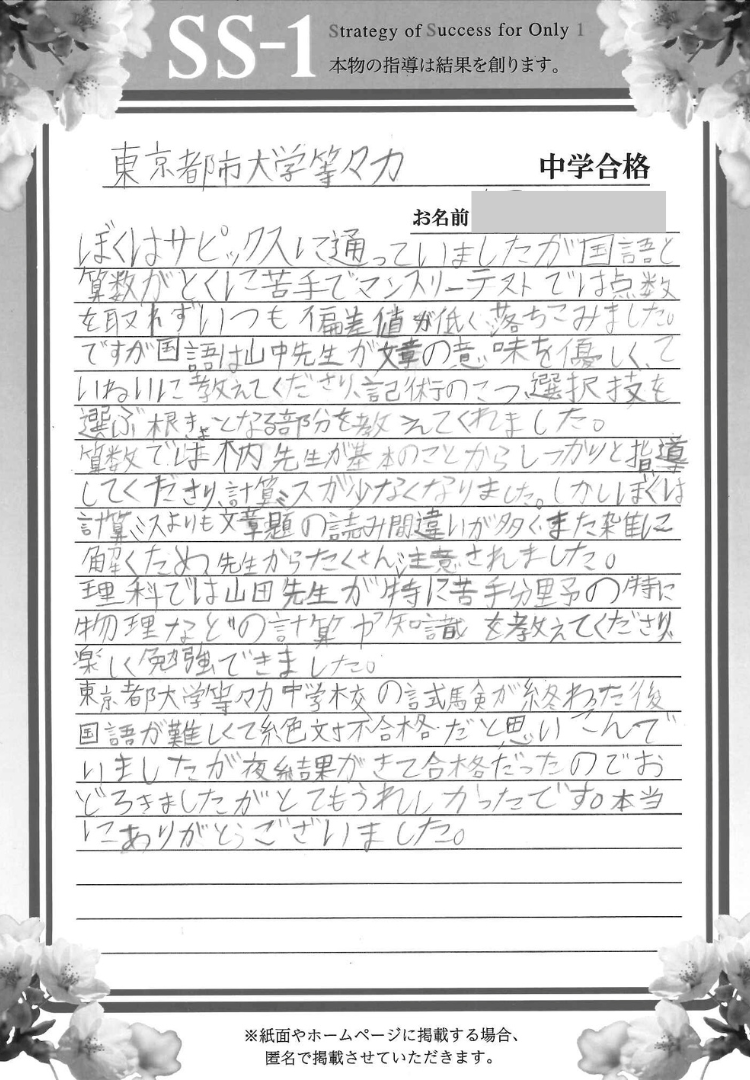 SS-1
Strategy of Success for Only 1
本物の指導は結果を創ります。
東京都市大学等々力 中学合格
お名前
ぼくはサピックスに通っていましたが国語と
算数がとくに苦手でマンスリーテストでは点数
を取れずいつも偏差値が低く落ちこみました。
ですが国語は山中先生が文章の意味を優しく、て
いねいに教えてくださり、記術のこつ、選択技を
選ぶ根きょとなる部分を教えてくれました。
算数では柄先生が基本のことからしっかりと指導
してくださり、計算ミスが少なくなりました。しかしぼくは
計算ミスよりも文章題の読み間違いが多く、また雑に
解くため先生からたくさん注意されました。
理科では山田先生が特に苦手分野の特に
物理などの計算や知識を教えてくださり、
楽しく勉強できました。
東京都大学等々力中学校の試験が終わった後
国語が難しくて絶対不合格だと思いこんで
いましたが夜結果がきて合格だったのでお
どろきましたがとてもうれしかったです。本当
にありがとうございました。
※紙面やホームページに掲載する場合、
匿名で掲載させていただきます。